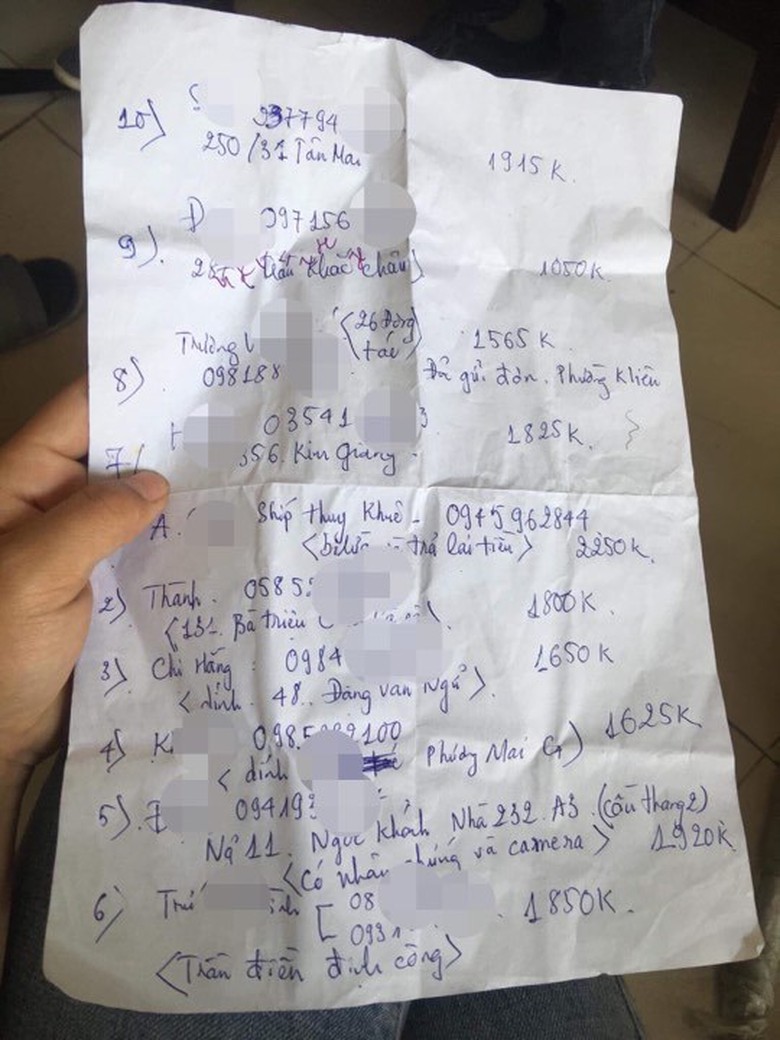 10) 937794
250/31 Tân Mai 1915K.
9). Đ 097156
28 trần khắc chân) 1050K.
Trường V <26 Đông tác> 1565K
8) 098188 Đã gửi đơn. Phường K liên
7/ H 03541 3 1825K.
356. Kim Giang
A. Ship thuỵ Khuê - 0945962844
trả lại tiền> 2250K.
2) Thành. 0585 1800K.
<131. Bà triệu
3) Chị Hằng: 0984 1650K
<dính. 48.. Đăng Văn Ngữ>.
4) K 098 100 1625K
<dính Phương Mai G)
5). 094193
Ngõ 11. Ngọc khánh Nhà 232. A3. (cầu thang 2)
<Có nhân chứng và camera> 1920K
6) 08 1850K.
093
<Trần điền định công>